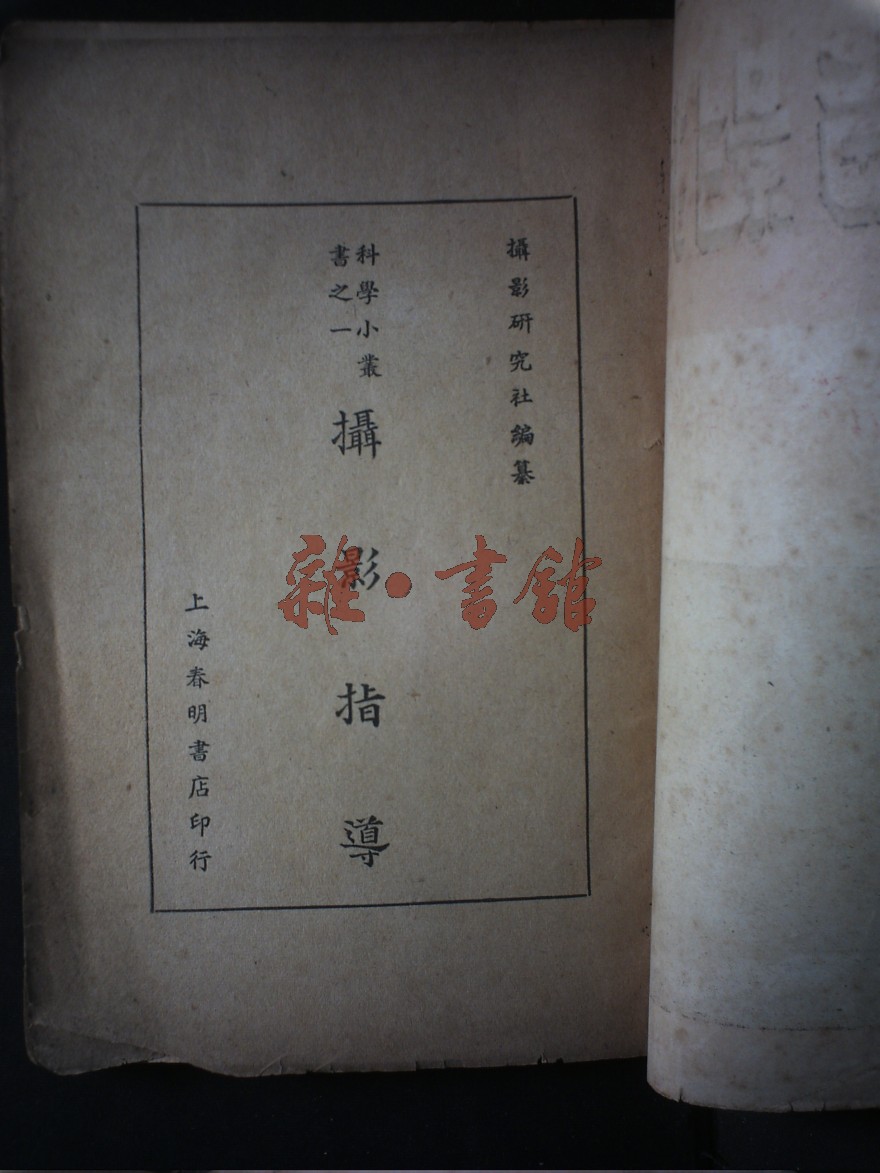 攝影研究社編纂
科學小叢
書之一
攝影指導
上海春明書店印行
雜·書館